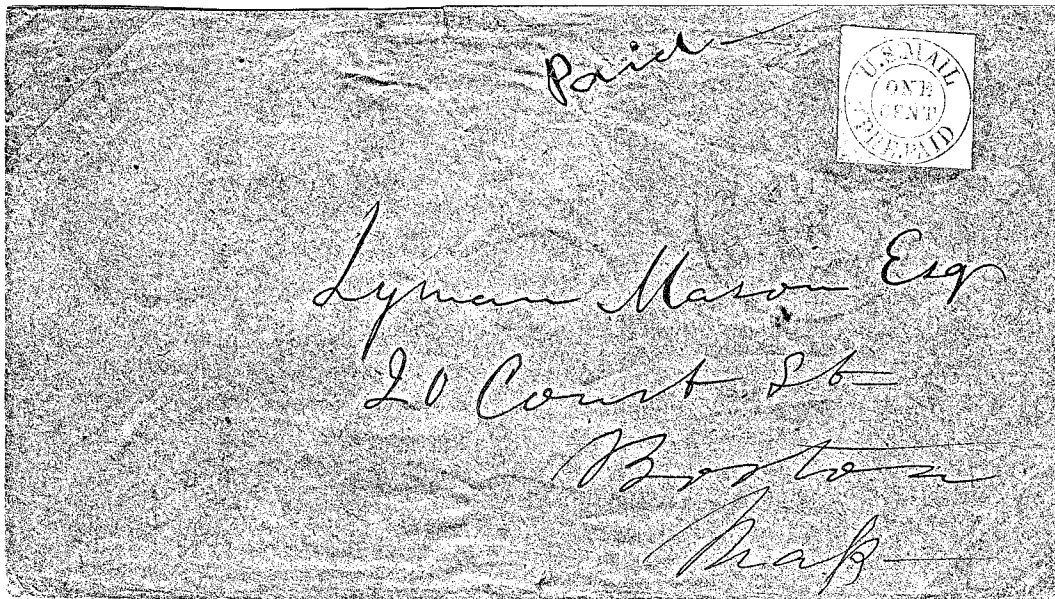 Paid
U.S. MAIL
ONE
CENT
PREPAID
Lyman Mason Esq
20 Court St
Boston
Mass